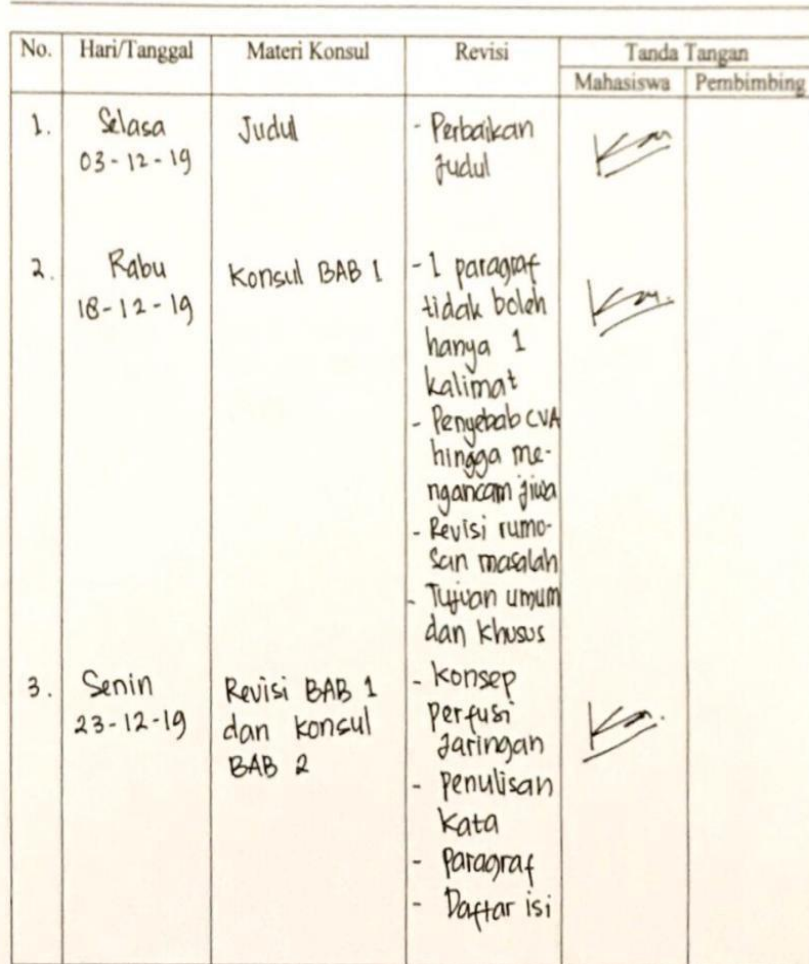 No. Hari/Tanggal Materi Konsul Revisi Tanda Tangan
Mahasiswa Pembimbing
1. Selasa Judul - Perbaikan
03-12-19 Judul
2. Rabu Konsul BAB 1 - 1 paragraf
18-12-19 tidak boleh
hanya 1
kalimat
- Penyebab CVA
hingga me-
ngancam jiwa
- Revisi rumo-
san masalah
- Tujuan umum
dan khusus
3. Senin Revisi BAB 1 - Konsep
23-12-19 dan konsul perfusi
BAB 2 Jaringan
- Penulisan
kata
- Paragraf
- Daftar isi